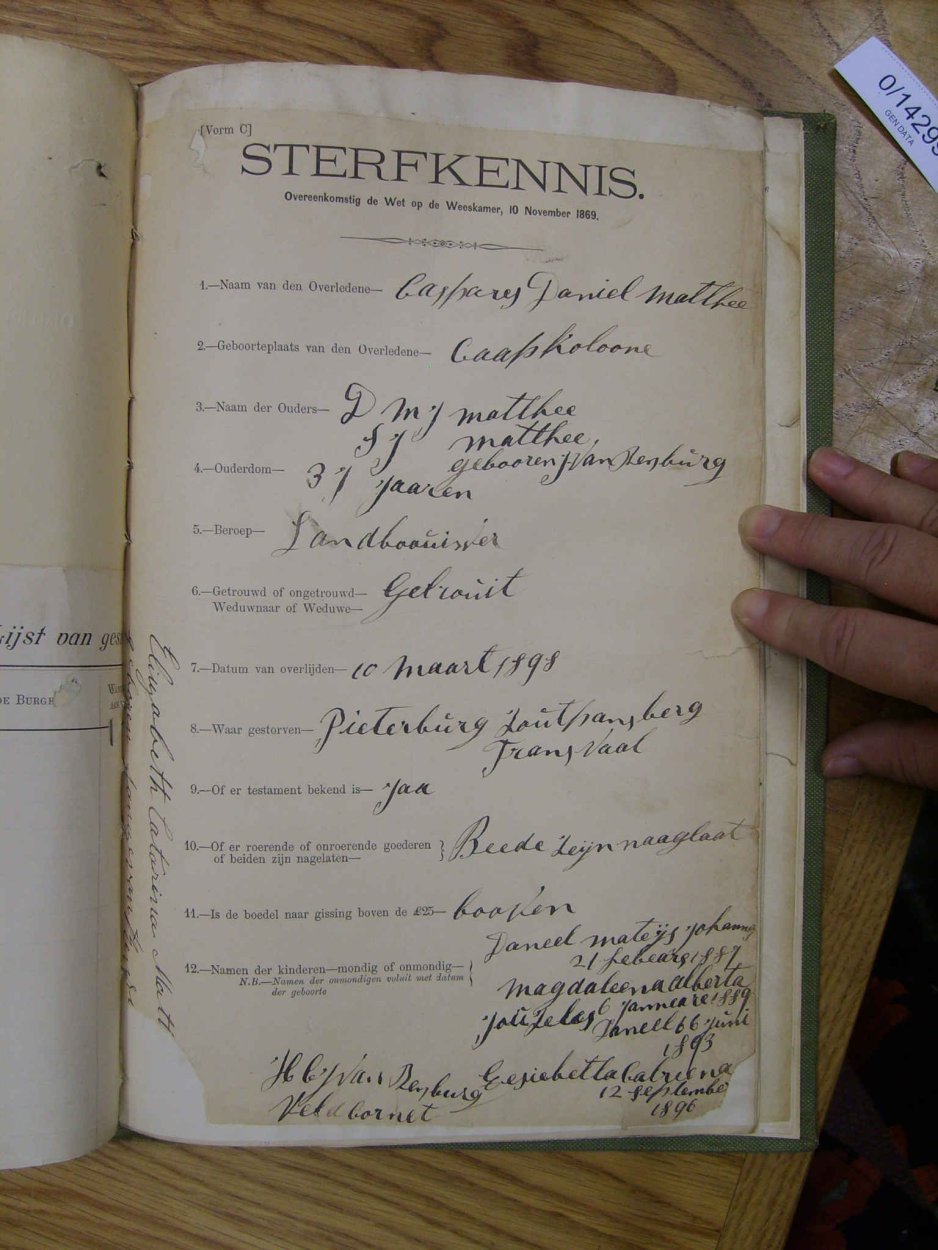 0/14299
GEN DATA
[Vorm C]
STERFKENNIS.
Overeenkomstig de Wet op de Weeskamer, 10 November 1869.
1.—Naam van den Overledene— Caspares Daniel Matthee
2.—Geboorteplaats van den Overledene— Caapkoloone
3.—Naam der Ouders— D M J matthee
S J matthee,
gebooren J van Rensburg
4.—Ouderdom— 37 Jaaren
5.—Beroep— Landboouwer
6.—Getrouwd of ongetrouwd— Getrouit
Weduwnaar of Weduwe—
7.—Datum van overlijden— 10 Maart 1898
8.—Waar gestorven— Pieterburg Zoutpansberg
Transvaal
9.—Of er testament bekend is— Jaa
10.—Of er roerende of onroerende goederen
of beiden zijn nagelaten— Beede Zeijn naaglaat
11.—Is de boedel naar gissing boven de £25— booven
12.—Namen der kinderen—mondig of onmondig—
N.B.—Namen der onmondigen voluit met datum
der geboorte
Daneel mateijs Johanns
21 febeare 1887
magdaleena alberta
Janneare 1889
Daneel 6 Juni
1893
12 September
1896
H C J Van Rensburg
Veldcornet
Elizabeth Catarina Matt
Lijst van ges
DE BURGH